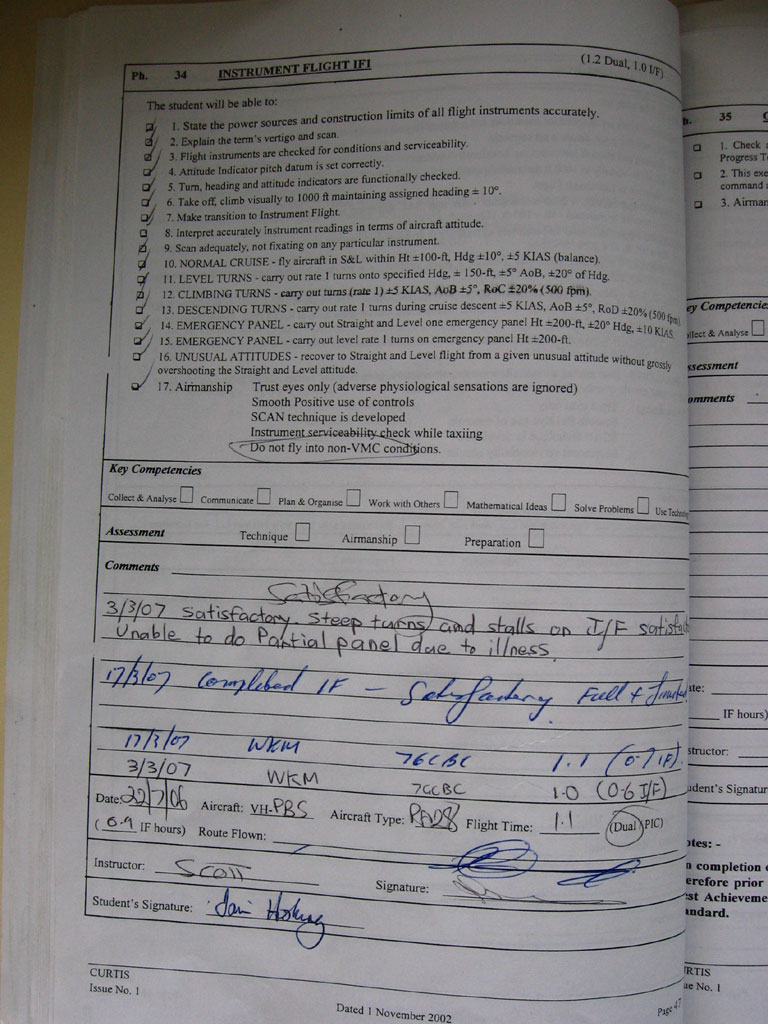 Ph. 34 INSTRUMENT FLIGHT IF1 (1.2 Dual, 1.0 I/F)
The student will be able to:
1. State the power sources and construction limits of all flight instruments accurately.
2. Explain the term's vertigo and scan.
3. Flight instruments are checked for conditions and serviceability.
4. Attitude Indicator pitch datum is set correctly.
5. Turn, heading and attitude indicators are functionally checked.
6. Take off, climb visually to 1000 ft maintaining assigned heading ± 10°.
7. Make transition to Instrument Flight.
8. Interpret accurately instrument readings in terms of aircraft attitude.
9. Scan adequately, not fixating on any particular instrument.
10. NORMAL CRUISE - fly aircraft in S&L within Ht ±100-ft, Hdg ±10°, ±5 KIAS (balance).
11. LEVEL TURNS - carry out rate 1 turns onto specified Hdg, ± 150-ft, ±5° AoB, ±20° of Hdg.
12. CLIMBING TURNS - carry out turns (rate 1) ±5 KIAS, AoB ±5°, RoC ±20% (500 fpm).
13. DESCENDING TURNS - carry out rate 1 turns during cruise descent ±5 KIAS, AoB ±5°, RoD ±20% (500 fpm)
14. EMERGENCY PANEL - carry out Straight and Level one emergency panel Ht ±200-ft, ±20° Hdg, ±10 KIAS.
15. EMERGENCY PANEL - carry out level rate 1 turns on emergency panel Ht ±200-ft.
16. UNUSUAL ATTITUDES - recover to Straight and Level flight from a given unusual attitude without grossly
overshooting the Straight and Level attitude.
17. Airmanship Trust eyes only (adverse physiological sensations are ignored)
Smooth Positive use of controls
SCAN technique is developed
Instrument serviceability check while taxiing
Do not fly into non-VMC conditions.
Key Competencies
Collect & Analyse Communicate Plan & Organise Work with Others Mathematical Ideas Solve Problems Use
Assessment Technique Airmanship Preparation
Comments
Satisfactory
3/3/07 satisfactory. Steep turns and stalls on I/F
Unable to do Partial panel due to illness
17/3/07 Completed IF - Satisfactory Full +
17/3/07 WKM 7GCBC 1.1 (0.7 IF).
3/3/07 WKM 7GCBC 1.0 (0.6 I/F)
Date: 22/7/06 Aircraft: VH-PBS Aircraft Type: Flight Time: 1.1 (Dual/PIC)
(0.9 IF hours) Route Flown:
Instructor: Scott Signature:
Student's Signature:
CURTIS
Issue No. 1
Dated 1 November 2002
Page 47
35
1. Check
Progress
2. This
command
3. Airman
& Analyse
IF hours)
completion
prior
Achieveme
Issue No. 1